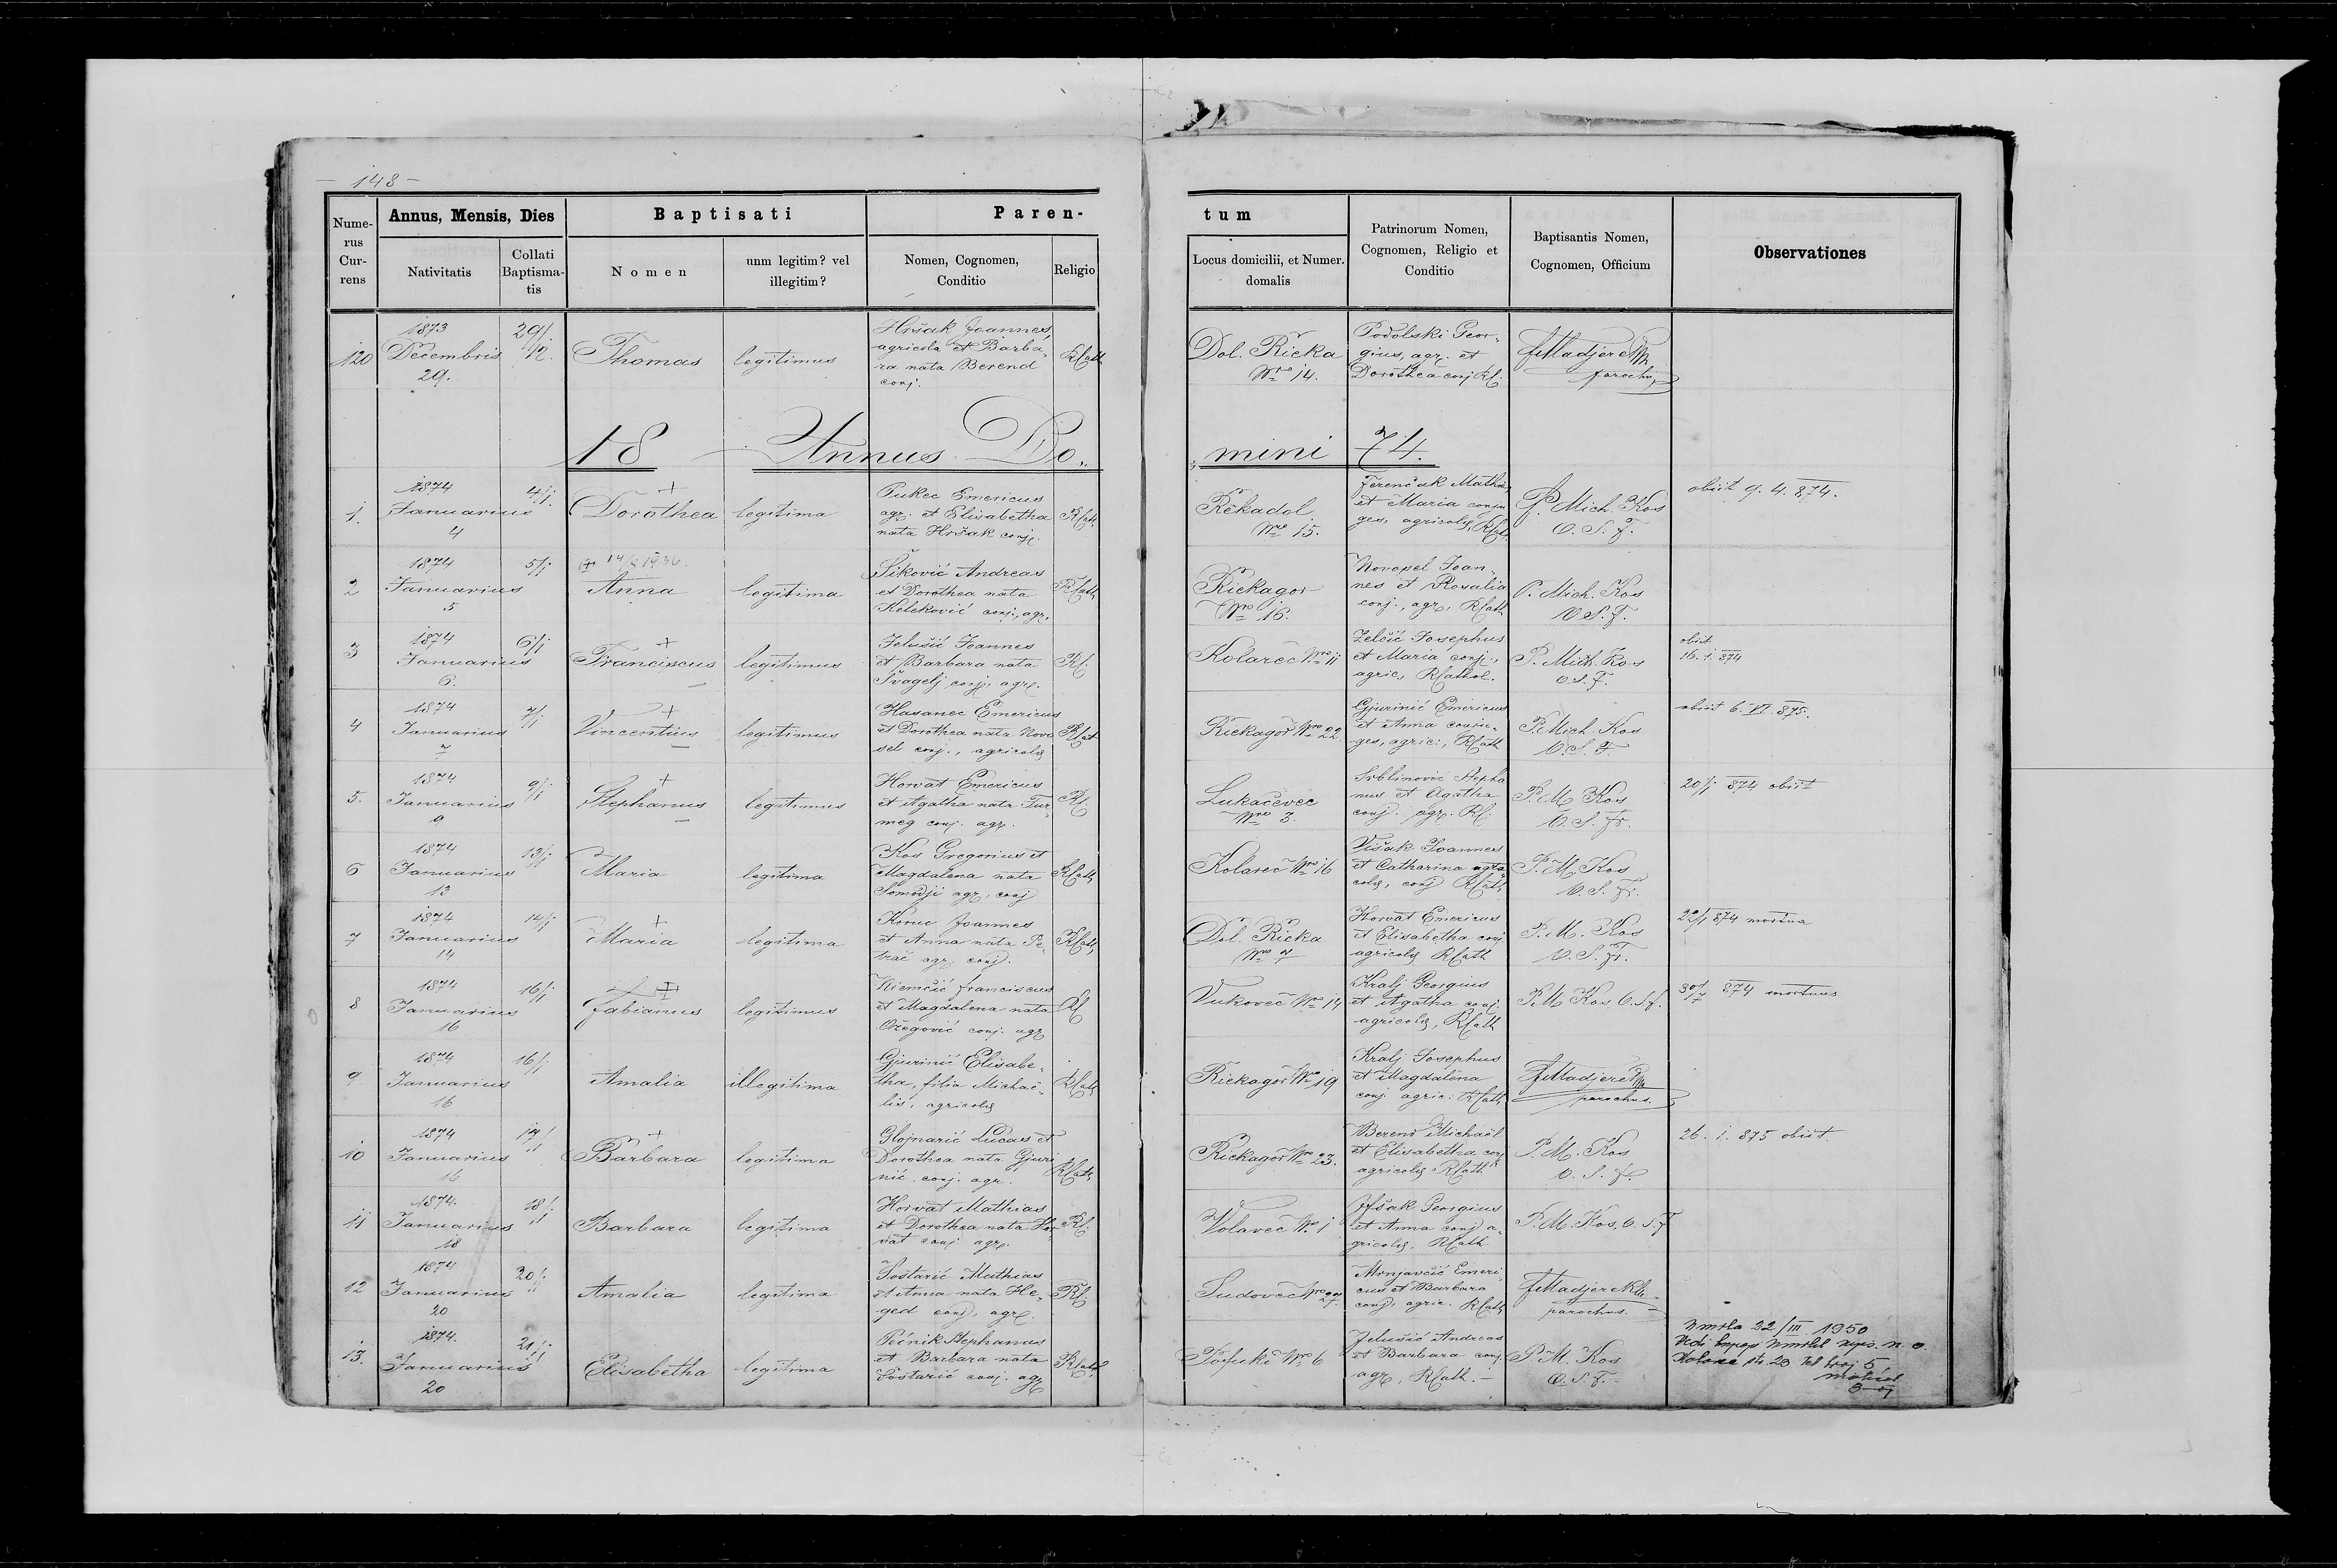 - 148 -
Nume-
rus
Cur-
rens
Annus, Mensis, Dies
Nativitatis
Collati
Baptisma-
tis
Baptisati
Nomen
unm legitim? vel
illegitim?
Paren-
Nomen, Cognomen,
Conditio
Religio
tum
Locus domicilii, et Numer.
domalis
Patrinorum Nomen,
Cognomen, Religio et
Conditio
Baptisantis Nomen,
Cognomen, Officium
Observationes
120
1873
Decembris
29.
29/12.
Thomas
legitimus
Hršak Joannes
agricola et Barba-
ra nata Berend
conj.
RCath
Dol. Rieka
Nro 14.
Podolski Geor-
gius, agr. et
Dorothea conj. RC.
parochus
18 Annus Do-
mini 74.
1.
1874
Januarius
4
4/1.
+
Dorothea
legitima
Pukec Emericus
agr. et Elisabetha
nata Hršak conj.
RCath.
Rekadol
Nro 15.
Ferenčak Mathias
et Maria conju
ges, agricolæ, RCath.
P. Mich. Kos
O. S. F.
obiit 9. 4. 874.
2
1874
Januarius
5
5/1
Anna
legitima
Šiković Andreas
et Dorothea nata
Keleković conj., agr.
RCath
Riekagor
Nro 16.
Novosel Joan-
nes et Rosalia
conj., agr., RCath
P. Mich. Kos
O S. F.
3
1874
Januarius
6.
6/1
+
Franciscus
legitimus
Jelušić Joannes
et Barbara nata
Švagelj conj. agr.
RC.
Kolareč Nro 11
Zelčić Josephus
et Maria conj.,
agric, RCathol.
P. Mich. Kos
O. S. F.
obiit
16. 1. 874
4
1874
Januarius
7
7/1
+
Vincentius
legitimus
Hasanec Emericus
et Dorothea nata Novo
sel conj., agricolæ
RCat
Riekagor Nro 22.
Gjurinić Emericus
et Anna conju-
ges, agric., RCath
P. Mich. Kos
O. S. F.
obiit 6. VI. 875.
5.
1874
Januarius
9
9/1
+
Stephanus
legitimus
Horvat Emericus
et Agatha nata Tur
meg conj. agr.
RC
Lukačevec
Nro 3.
Srblinovic Stepha
nus et Agatha
conj. agr. RC.
P. M. Kos
O. S. Fr.
874 obiit
6
1874
Januarius
13
13/1
Maria
legitima
Kos Gregorius et
Magdalena nata
Somodji agr. conj
RCath
Kolareč Nro 16
Višak Joannes
et Catharina
colæ, conj RCath
P. M. Kos
O. S. Fr.
7
1874
Januarius
14
14/1
+
Maria
legitima
Joannes
et Anna nata Pe-
trač agr. conj.
RCath
Dol. Rieka
Nro 7
Horvat Emericus
et Elisabetha conj
agricolæ RCath
P. M. Kos
O. S. Fr.
22/1 874 mortua
8
1874
Januarius
16
16/1
Fabianus
legitimus
Niemčić Franciscus
et Magdalena nata
Ožegović conj. agr
RC
Vukoveč Nro 14
Kralj Georgius
et Agatha conj.
agricolæ, RCath
P. M Kos O. S. F.
874 mortuus
9
1874
Januarius
16
16/1.
Amalia
illegitima
Gjurinić Elisabe-
tha, filia Michae-
lis, agricolæ
RCath
Riekagor Nro 19
Kralj Josephus
et Magdalena
conj agric. RCath
parochus.
10
1874
Januarius
16
17/1
+
Barbara
legitima
Glojnarić Lucas et
Dorothea nata Gjuri
nić. conj. agr.
RCath
Riekagor Nro 23.
Berend Michaël
et Elisabetha conj
agricolæ RCath
P. M. Kos
O. S. F.
26. 1. 875 obiit.
11
1874.
Januarius
18
18/1
Barbara
legitima
Horvat Mathias
et Dorothea nata Hor
vat conj. agr.
RC.
Volaveč Nro 1
Georgius
et Anna conj a-
gricolæ, RCath.
P. M. Kos, O. S. F
12
1874
Januarius
20
20/1
Amalia
legitima
Šoštarić Mathias
et Anna nata He-
ged conj. agr.
RC.
Sudoveč Nro 27.
Mrnjavčić Emeri-
cus et Barbara
conj, agric. RCath
parochus.
13.
1874.
Januarius
20
21/1
Elisabetha
legitima
Pećnik Stephanus
et Barbara nata
Šoštarić conj. agr
RCath
Nro 6
Jelušić Andreas
et Barbara conj.
agr, RCath. -
P. M. Kos
O. S. F. -
Umrla 22/III 1950